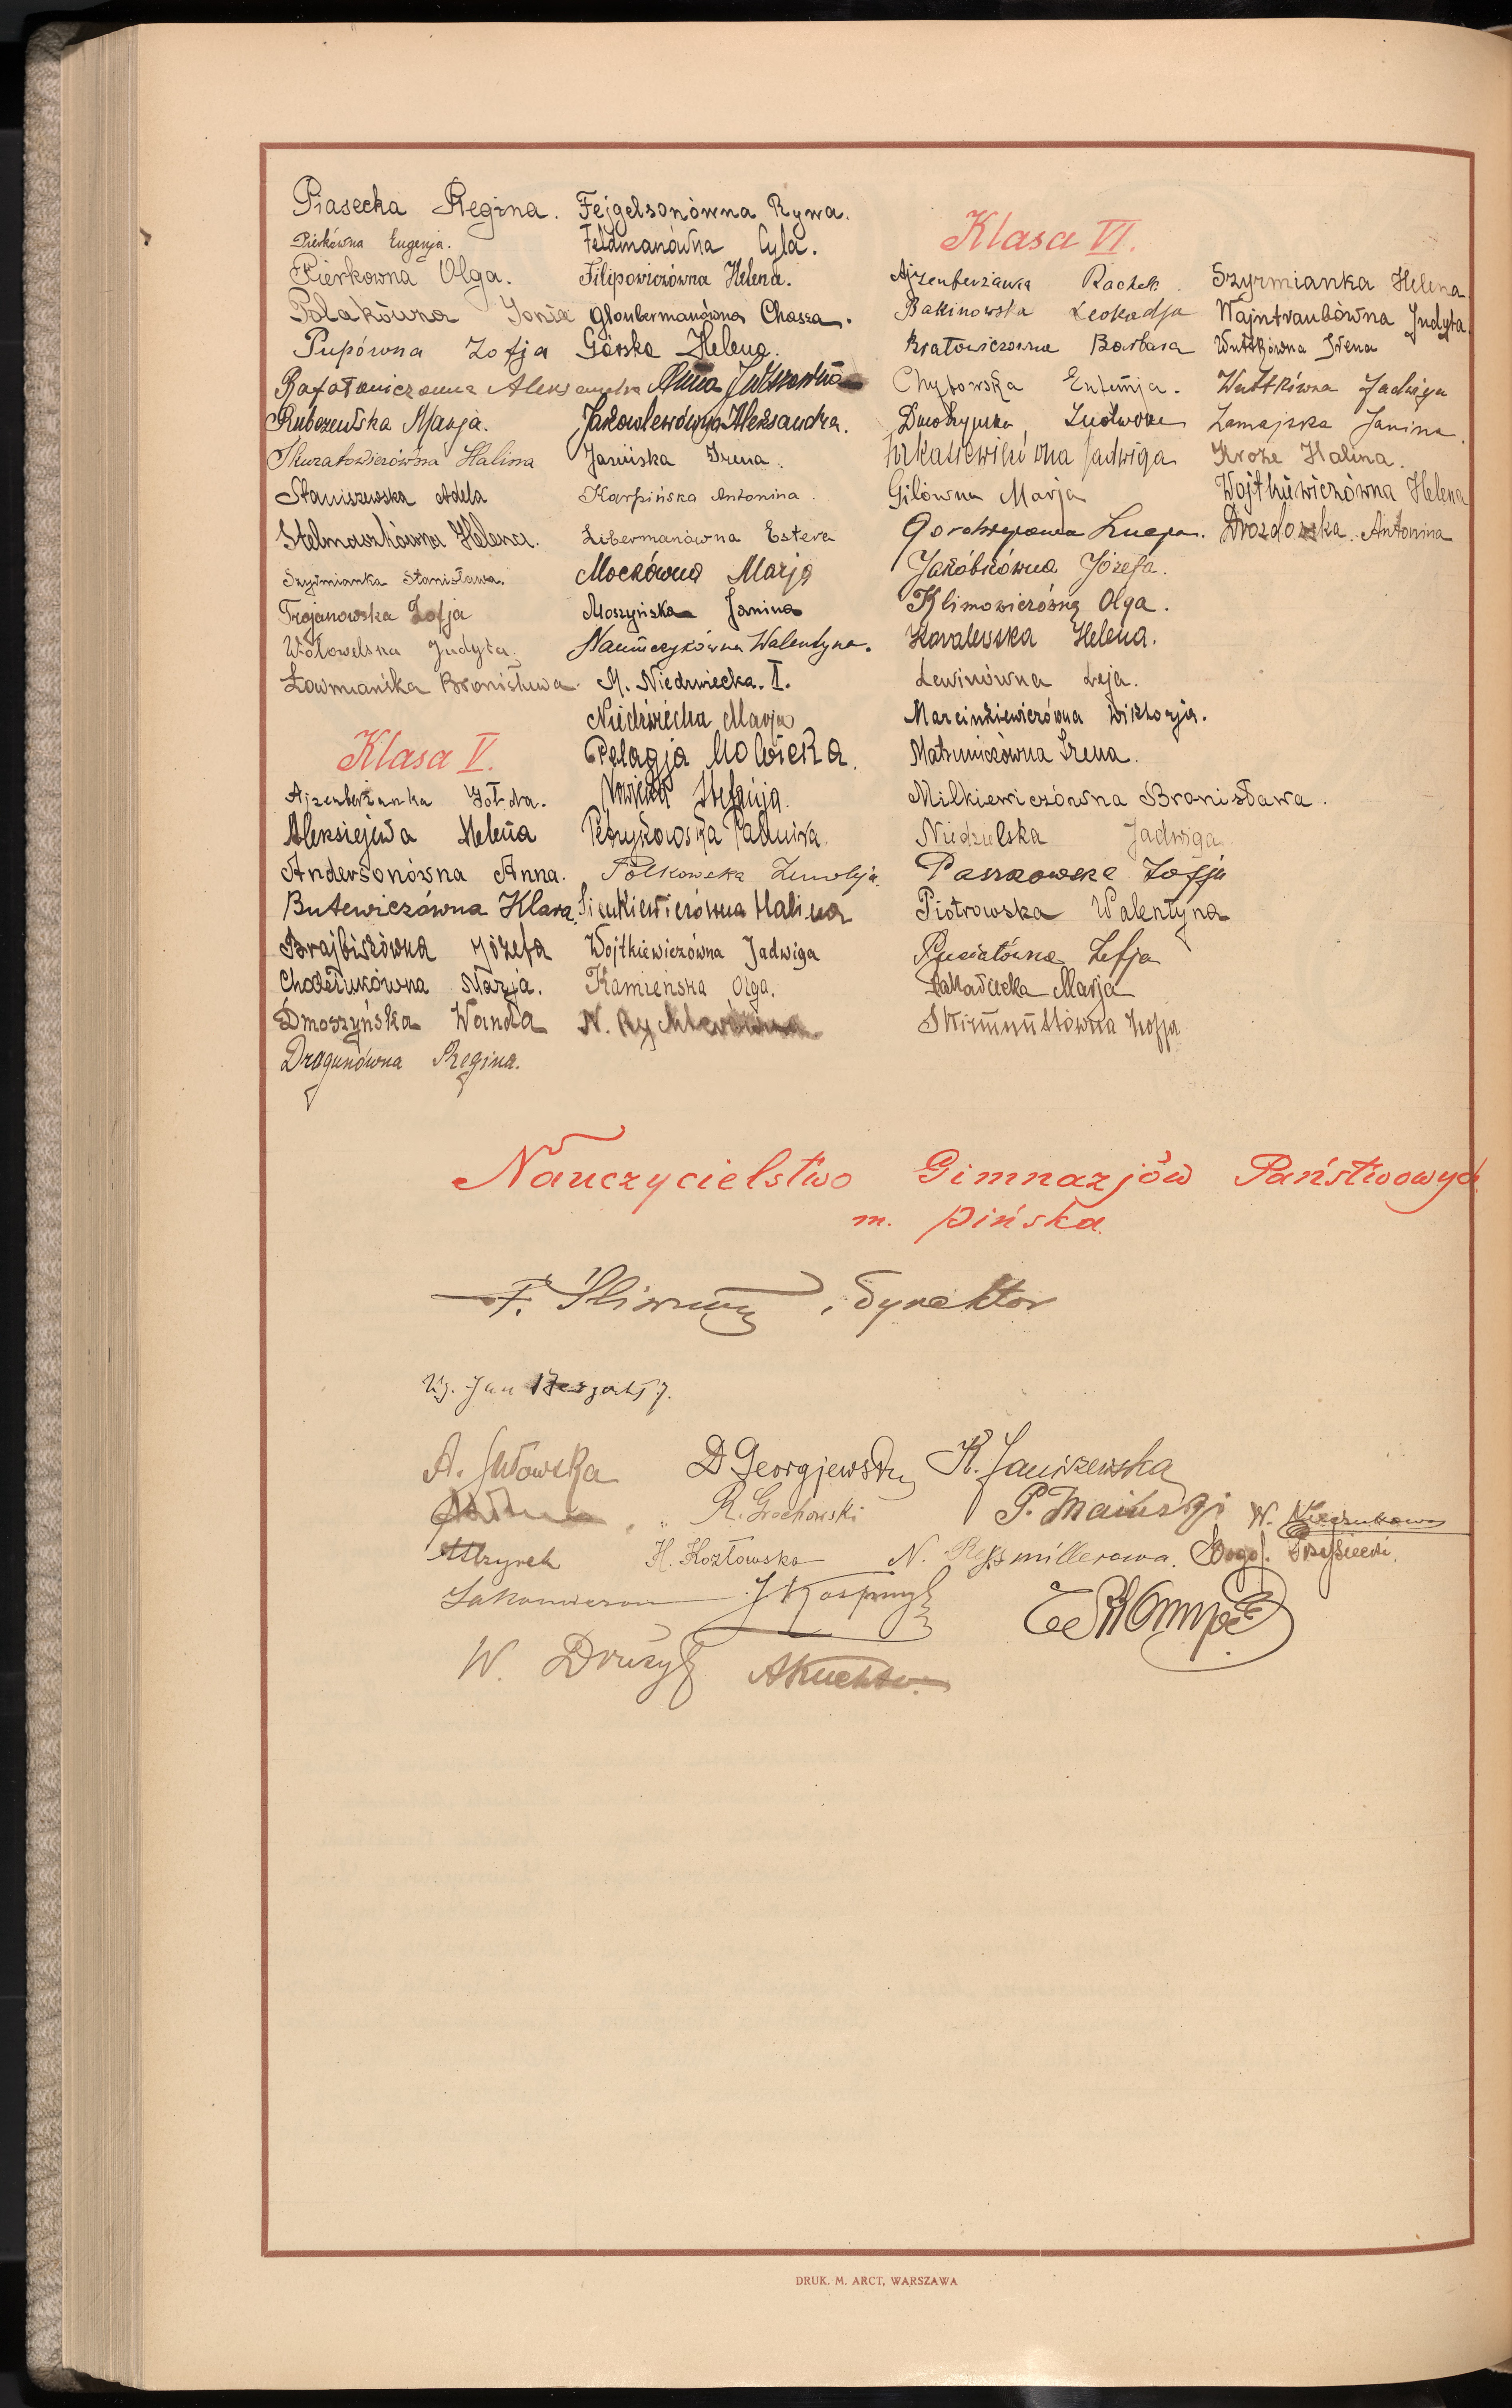 Piasecka Regina.
Pierkówna Eugenja.
Pierkowna Olga.
Polakówna Sonia
Pupówna Zofja
Rafałowiczowna Aleksandra
Rubszewska Marja.
Skuratowiczówna Halina
Staniszewska Adela
Stelmaszkówna Helena.
Szyrmianka Stanisława.
Trojanowska Zofja
Wołowelska Judyta.
Łowmiańska Bronisława.
Klasa V.
Ajzenberżanka Zołda.
Aleksiejewa Helena
Andersonówna Anna.
Butewiczówna Klara.
Brajbiszówna Józefa
Chodetukówna Marja.
Dmoszyńska Wanda
Dragunówna Regina.
Fejgelsonówna Rywa.
Feldmanówna Cyla.
Filipowiczówna Helena.
Gloubermanówna Chasza.
Górska Helena.
Anna
Jakowlewówna Aleksandra.
Jasińska Irena.
Karpińska Antonina.
Libermanówna Estera
Mockówna Marja
Moszyńska Janina
Naumczykówna Walentyna.
M. Niedzwiecka. I.
Niedźwiecka Marja
Pelagja Nowicka.
Nowicka Stefanja.
Petrykowska Paulina.
Polkowska
Sienkiewiczówna Halina
Wojtkiewiczówna Jadwiga
Kamieńska Olga.
N.
Klasa VI.
Ajzenberżanka Rachel.
Bakinowska Leokadja
Bratowiczowna Barbara
Chytowska Eufemja.
Ludwika
Jadwiga
Gilówna Marja
Łucja.
Jakóbkówna Józefa.
Klimowiczówna Olga.
Kowalewska Helena.
Lewinówna Leja.
Marcinkiewiczówna Wiktorja.
Matusewiczówna Irena.
Milkiewiczówna Bronisława.
Niedzielska Jadwiga
Paszkowska Zofja
Piotrowska Walentyna
Rusiatówna Zofja
Sakawicka Marja
Skirmunttówna Zofja
Szyrmianka Helena.
Wajntraubówna Judyta.
Wuttkówna Irena
Wuttkówna Jadwiga
Zamajska Janina.
Kroze Halina.
Wojtkiewiczówna Helena
Drozdowska Antonina
Nauczycielstwo Gimnazjów Państwowych
m. Pińska.
F. Śliwiński, dyrektor
Ks. Jan
A. Jutowska D Georgjewski K. Janiszewska
R. Grochowski P. Maiński W.
Mżyrek H. Kozłowska N. Rejsmillerowa.
J Kasprzyk
W. Drużył AKuchta.
DRUK. M. ARCT, WARSZAWA